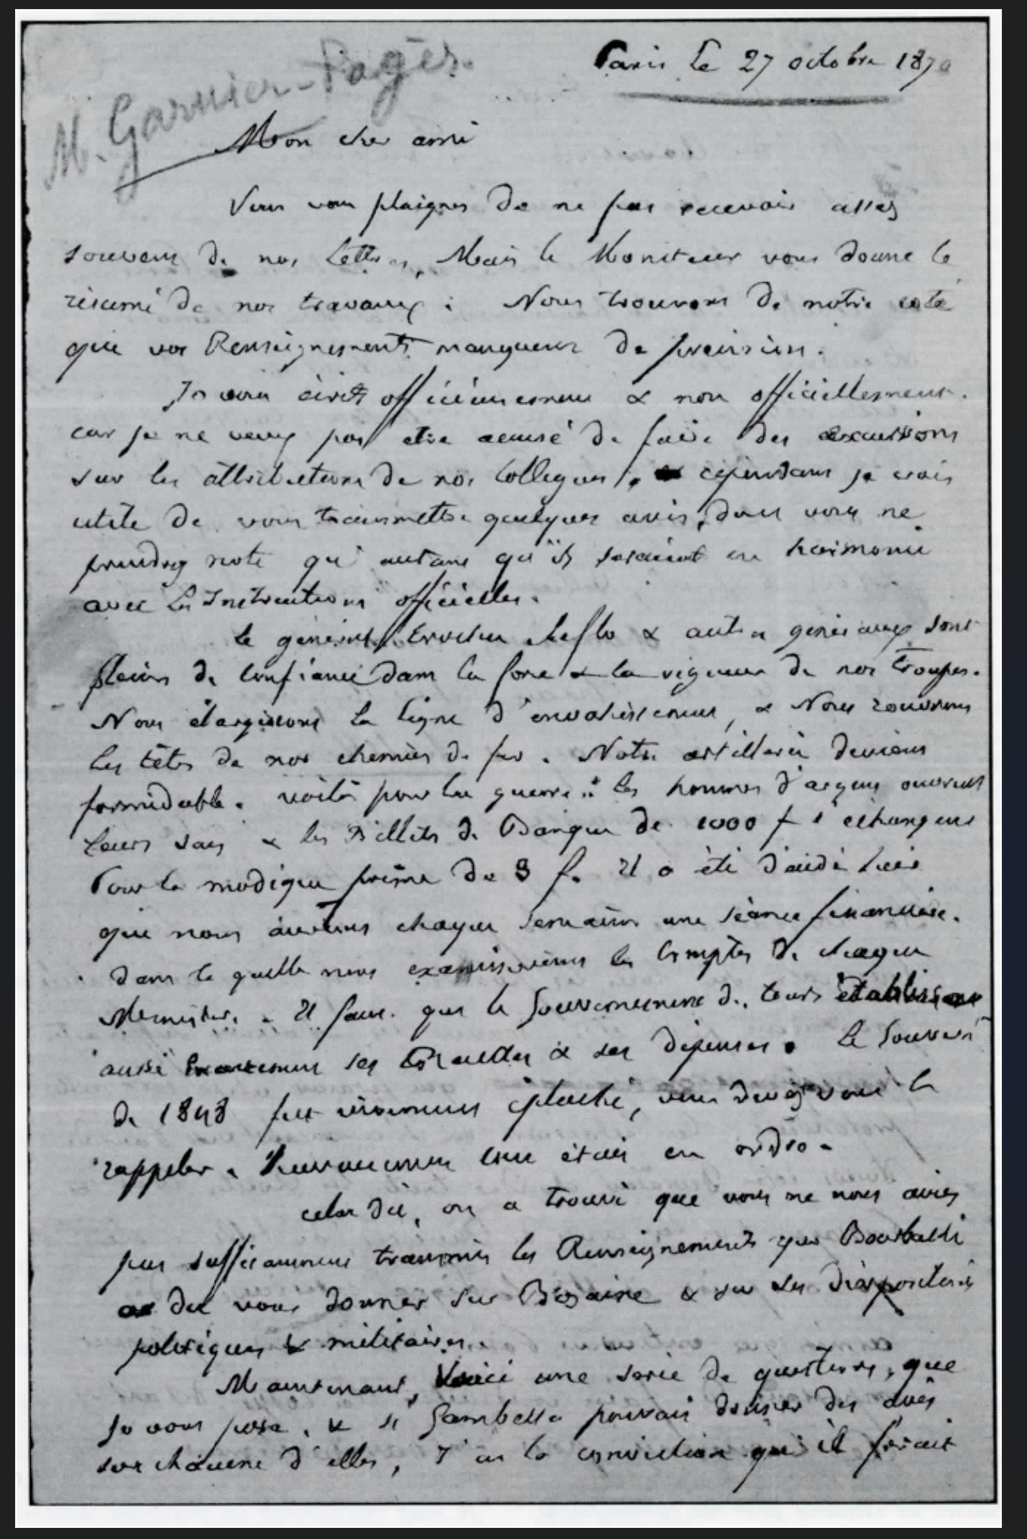 M. Garnier-Pagès.
Paris le 27 octobre 1870
Mon cher ami
Vous vous plaignez de ne pas recevoir assez
souvent de nos lettres, Mais le Moniteur vous donne le
résumé de nos travaux : Nous trouvons de notre coté
que vos Renseignements manquent de précision.
Je vous écrit officieusement & non officiellement.
car je ne veux pas etre accusé de faire des excursions
sur les attributions de nos Collegues, cependant je crois
utile de vous transmettre quelques avis, dont vous ne
prendrez note qu'autant qu'ils seraient en harmonie
avec les Instructions officielles.
le général Trochu Leflo & autres généraux sont
pleins de Confiance dans la force & la vigueur de nos troupes.
Nous élargissons la ligne d'envahissement, & Nous rouvrons
les têtes de nos chemins de fer. Notre artillerie devient
formidable. voilà pour la guerre : les hommes d'argent ouvrent
leurs sacs & les Billets de Banque de 1000 f s'échangent
Pour la modique prime de 3 f. Il a été décidé hier
que nous aurions chaque semaine une séance financière.
dans la quelle nous examinerions les Comptes de chaque
Ministère. Il faut que le Gouvernement de tours établisse
aussi exactement ses Recettes & ses dépenses. Le Gouvern
de 1848 fut vivement épluché, vous devez vous le
rappeler. heureusement tout était en ordre.
cela dit, on a trouvé que vous ne nous aviez
pas suffisamment transmis les Renseignements que Bourbaki
a du vous donner sur Bazaine & sur ses dispositions
politiques & militaires.
Maintenant, Voici une serie de questions, que
Je vous pose, & si Gambetta pouvait donner des avis
sur chacune d'elles, J'ai la conviction qu'il ferait